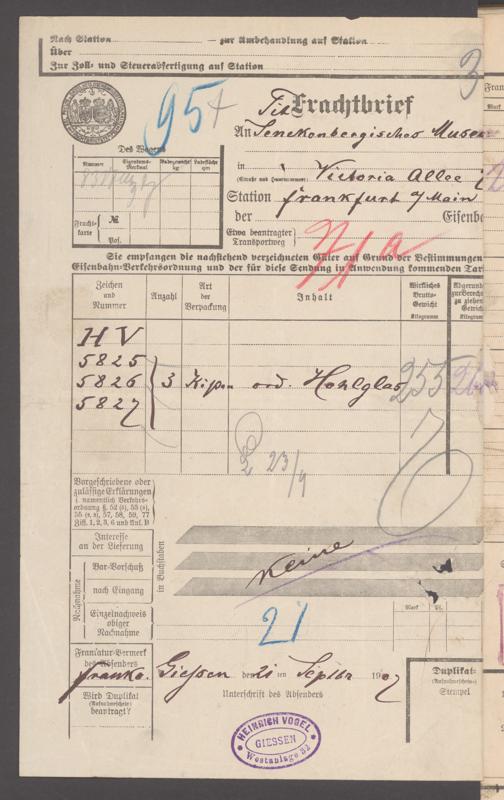 Nach Station — zur Umbehandlung auf Station
Über
Zur Zoll- und Steuerabfertigung auf Station
3
95
Tit Frachtbrief
An Senckenbergisches Museu
in
(Straße und Hausnummer) Victoria Allee 7
Station Frankfurt a/Main
der Eisenba
Etwa beantragter
Transportweg
71a
Des Wagens
Nummer Eigentums-Merkmal Ladegewicht kg Ladefläche qm
Fracht-karte № Pos.
Sie empfangen die nachstehend verzeichneten Güter auf Grund der Bestimmungen
Eisenbahn-Verkehrsordnung und der für diese Sendung in Anwendung kommenden Tar
Zeichen und Nummer Anzahl Art der Verpackung Inhalt Wirkliches Brutto-Gewicht Kilogramm
H V
5825
5826 3 Kisten ord. Hohlglas 255
5827
23/9
Vorgeschriebene oder
zulässige Erklärungen
(namentlich Verkehrs-
ordnung §. 52 (5), 53 (5),
55 (2, 3), 57, 58, 59, 77
Ziff. 1, 2, 3, 6 und Anl. B
Interesse
an der Lieferung
in Buchstaben
Nachnahme
Bar-Vorschuß
nach Eingang
Keine
Einzelnachweis
obiger
Nachnahme
Mark Pf.
21
Frankatur-Vermerk
des Absenders
franko. Giessen den 21 ten Septbr 1907
Wird Duplikat
(Aufnahmeschein)
beantragt?
Unterschrift des Absenders
Duplikat-
(Aufnahmeschein-)
Stempel
HEINRICH VOGEL
GIESSEN
Westanlage 32